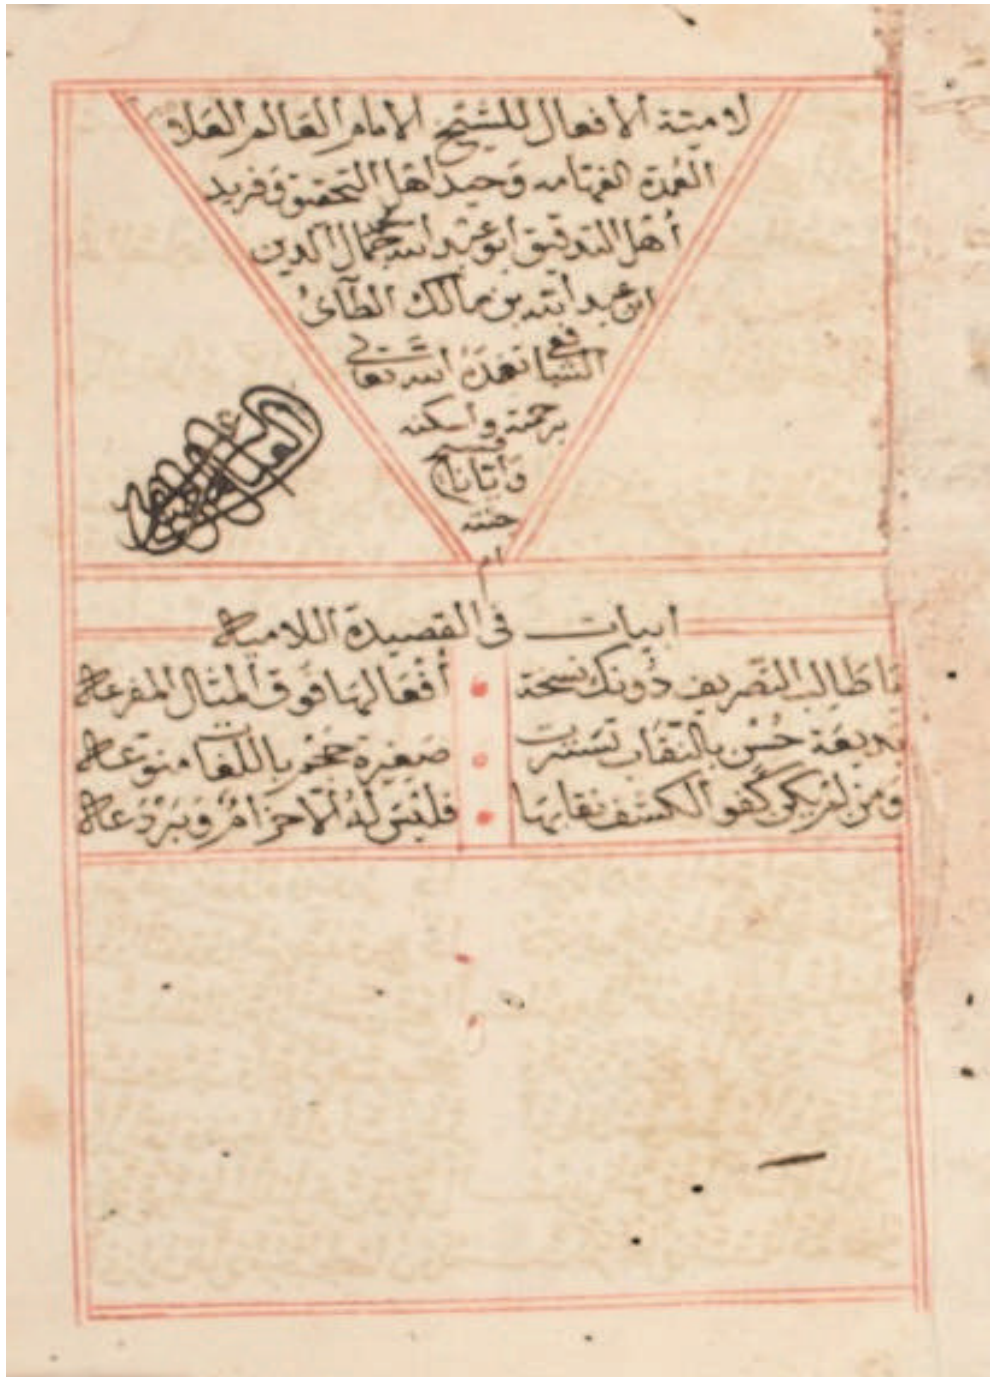 لامية الافعال للشيخ الامام العالم العلا
العمدة الفهامه وحيد اهل التحقيق وفريد
أهل التدقيق ابو عبد الله محمد جمال الدين
ابن عبد الله بن مالك الطآئ
الشافعي تغمده الله تعالى
برحمته واسكنه
فسيح
جنته
ام
ابيات في القصيدة اللامية
يا طالب التصريف دونك نسخة أفعالها فوق المثال المفرعه
بديعة حسن بالنقاب تسترت صغيرة حجم باللغات منوعه
ومن لم يكن كفوا لكشف نقابها فليس له الا حزام وبردعه